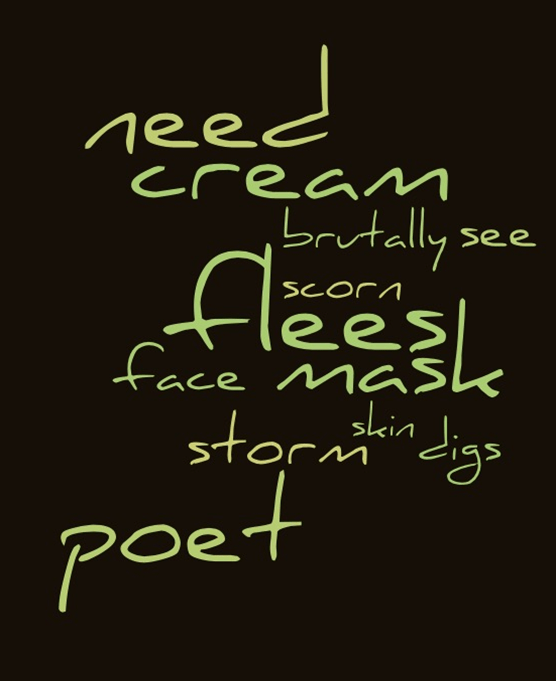 need
cream
brutally see
scorn
flees
face mask
skin
storm digs
poet